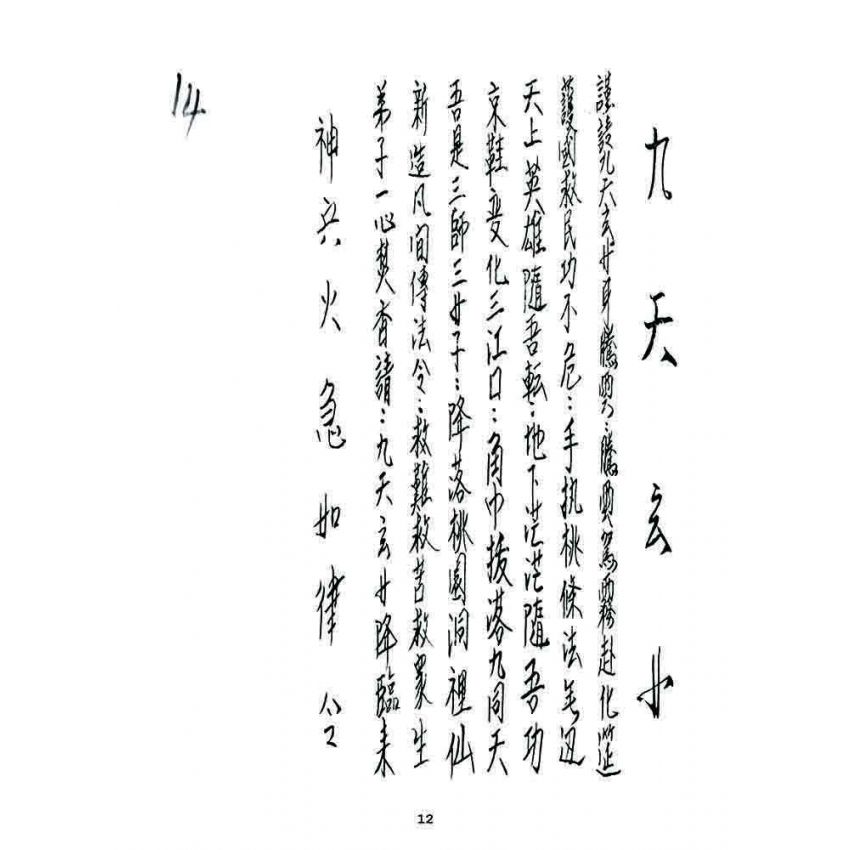 九天玄女
謹請九天玄女身騰雲：騰雲駕霧赴化筵
護國救民功不危：手执桃條法無迅
天上英雄隨吾転：地下茫茫隨吾功
京鞋变化三江口：角巾拨落九同天
吾是三師三女子：降落桃園洞裡仙
新造凡间傳法令：救難救苦救眾生
弟子一心焚香請：九天玄女降臨来
神兵火急如律令
14
12